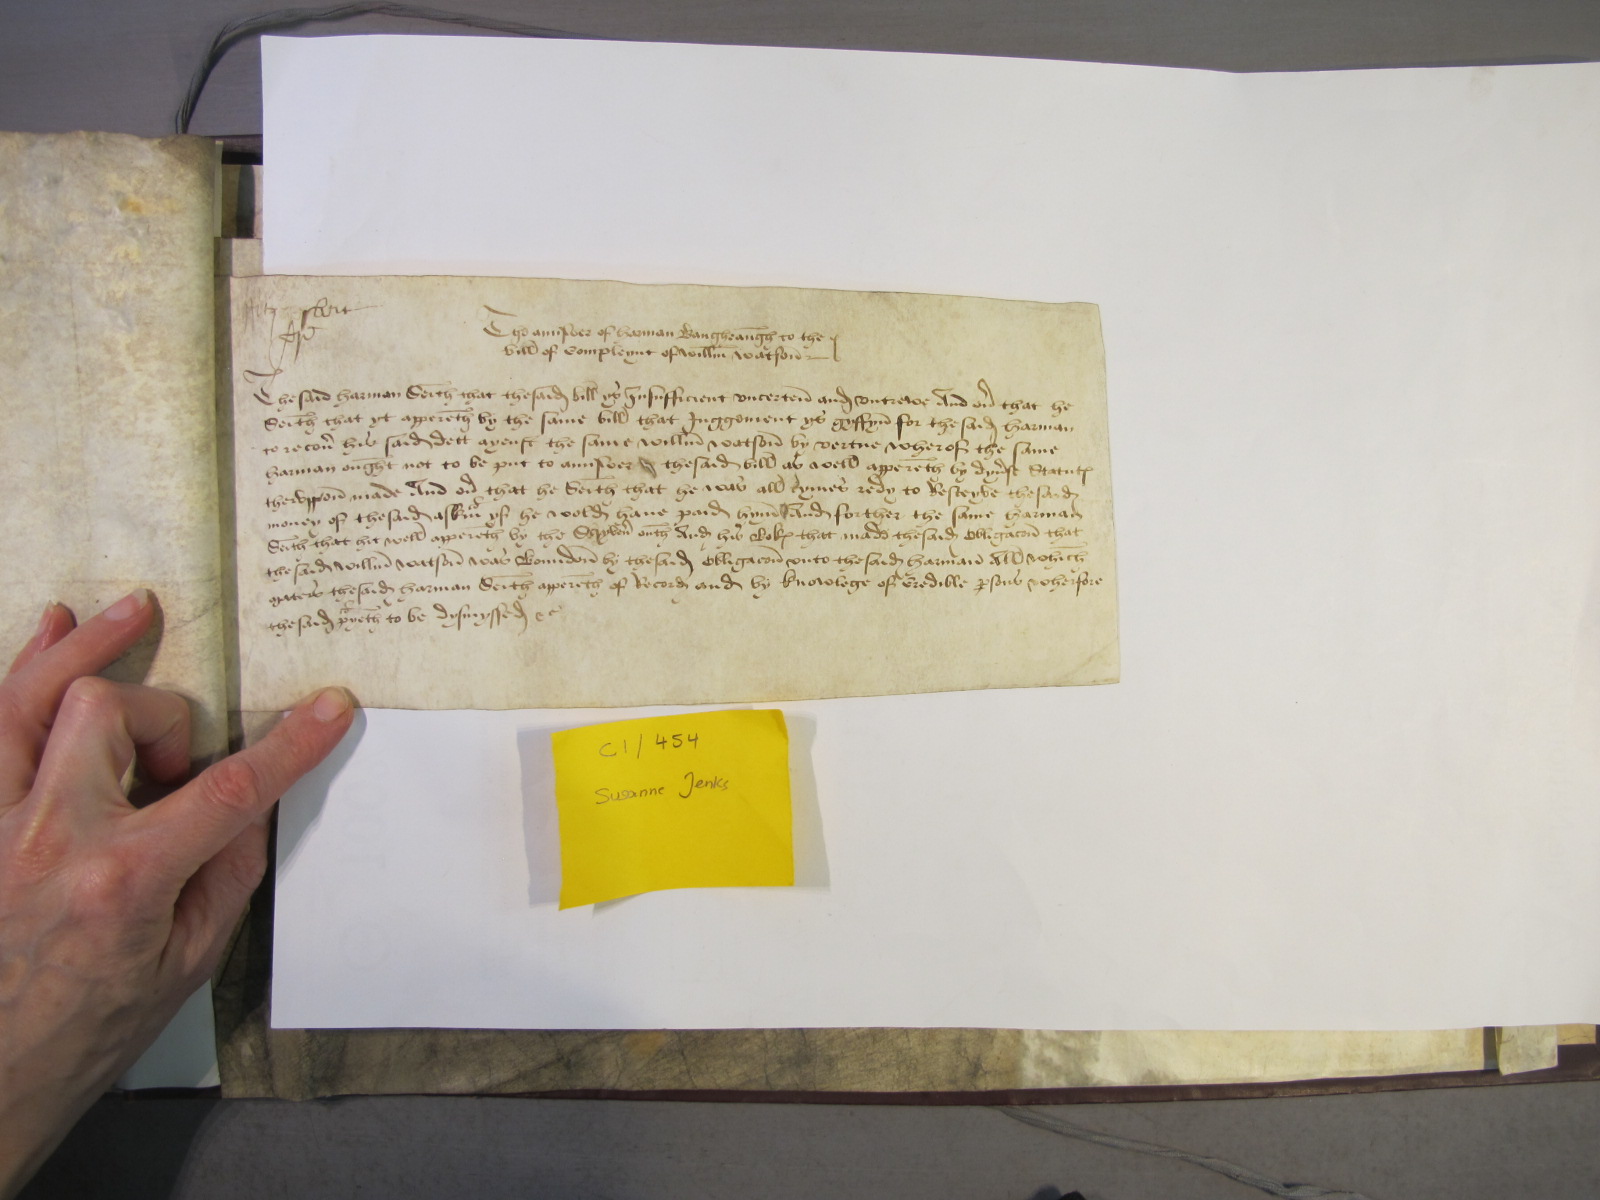 The annswer of harman Vangheaugh to the
bill of compleynt of Willm Watson
The said harman Seith that the said bill ys Insufficient uncerten and untrewe And ou̅ that he
Seith that yt appereth by the same bill that Juggement ys gyffyn for the said harman
to recou̅ his said dett ayenst the same Willm Watson by vertue wherof the same
harman ought not to be put to annswer the said bill as well appereth by dyu̅se Statut
theruppon made And ou̅ that he Seith that he was all tymes redy to Resceybe the said
money of the said yf he wold have paid hym And forther the same harman
Seith that hit well appereth by the oth And his Bok that made the said obligacon that
the said Willm Watson was Bounden by the said obligacon unto the said harman All which
maters the said harman Seith appereth of Record and by knowlege of credible psons wherfore
the said pyeth to be dysmyssed &c
C1/454
Susanne Jenks